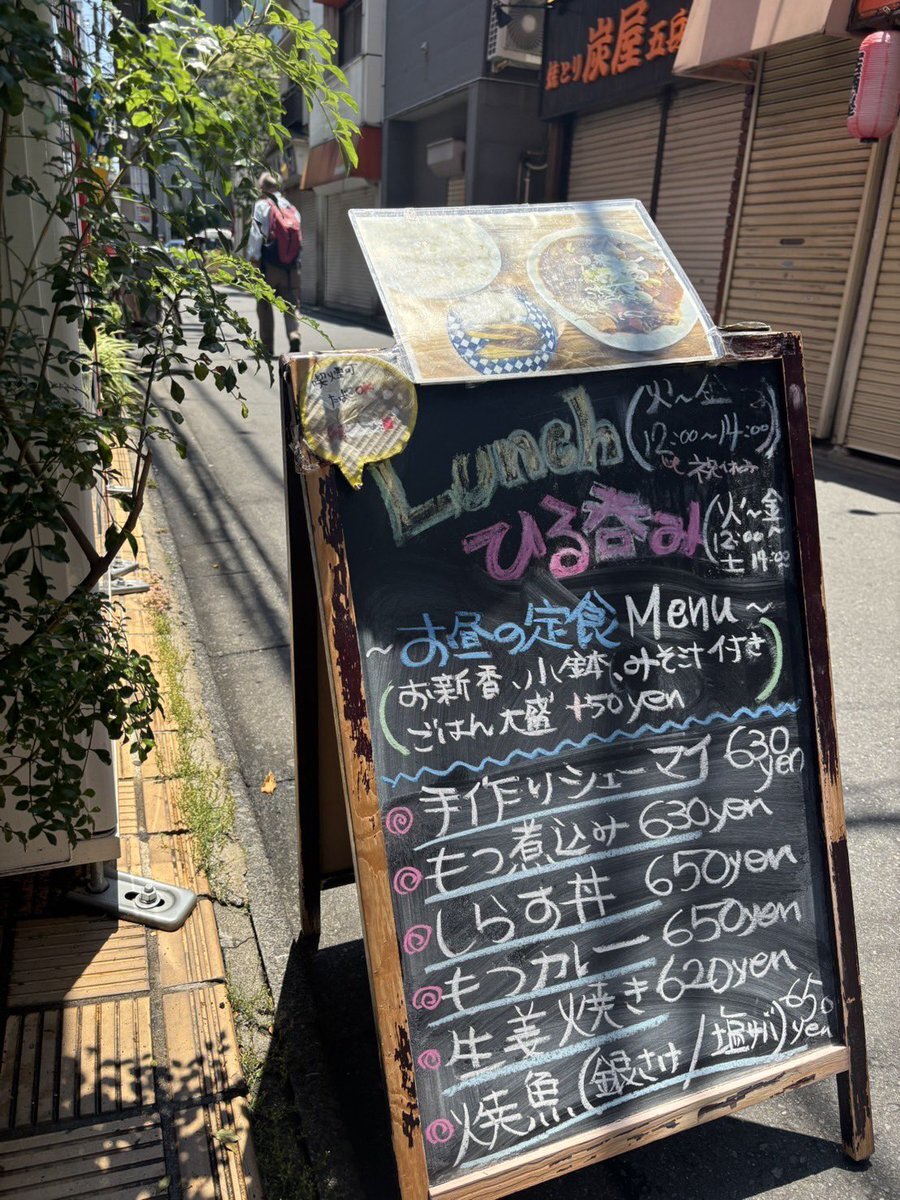 炭屋五兵
喫煙可
Lunch (火〜金
12:00〜14:00)
祝休み
ひる呑み (火〜金
12:00〜
土 14:00
〜お昼の定食 Menu〜
(お新香、小鉢、みそ汁付き
ごはん大盛 +50yen)
手作りシューマイ 630yen
もつ煮込み 630yen
しらす丼 650yen
もつカレー 650yen
生姜焼き 620yen
焼魚(銀さけ/塩サバ) 650yen